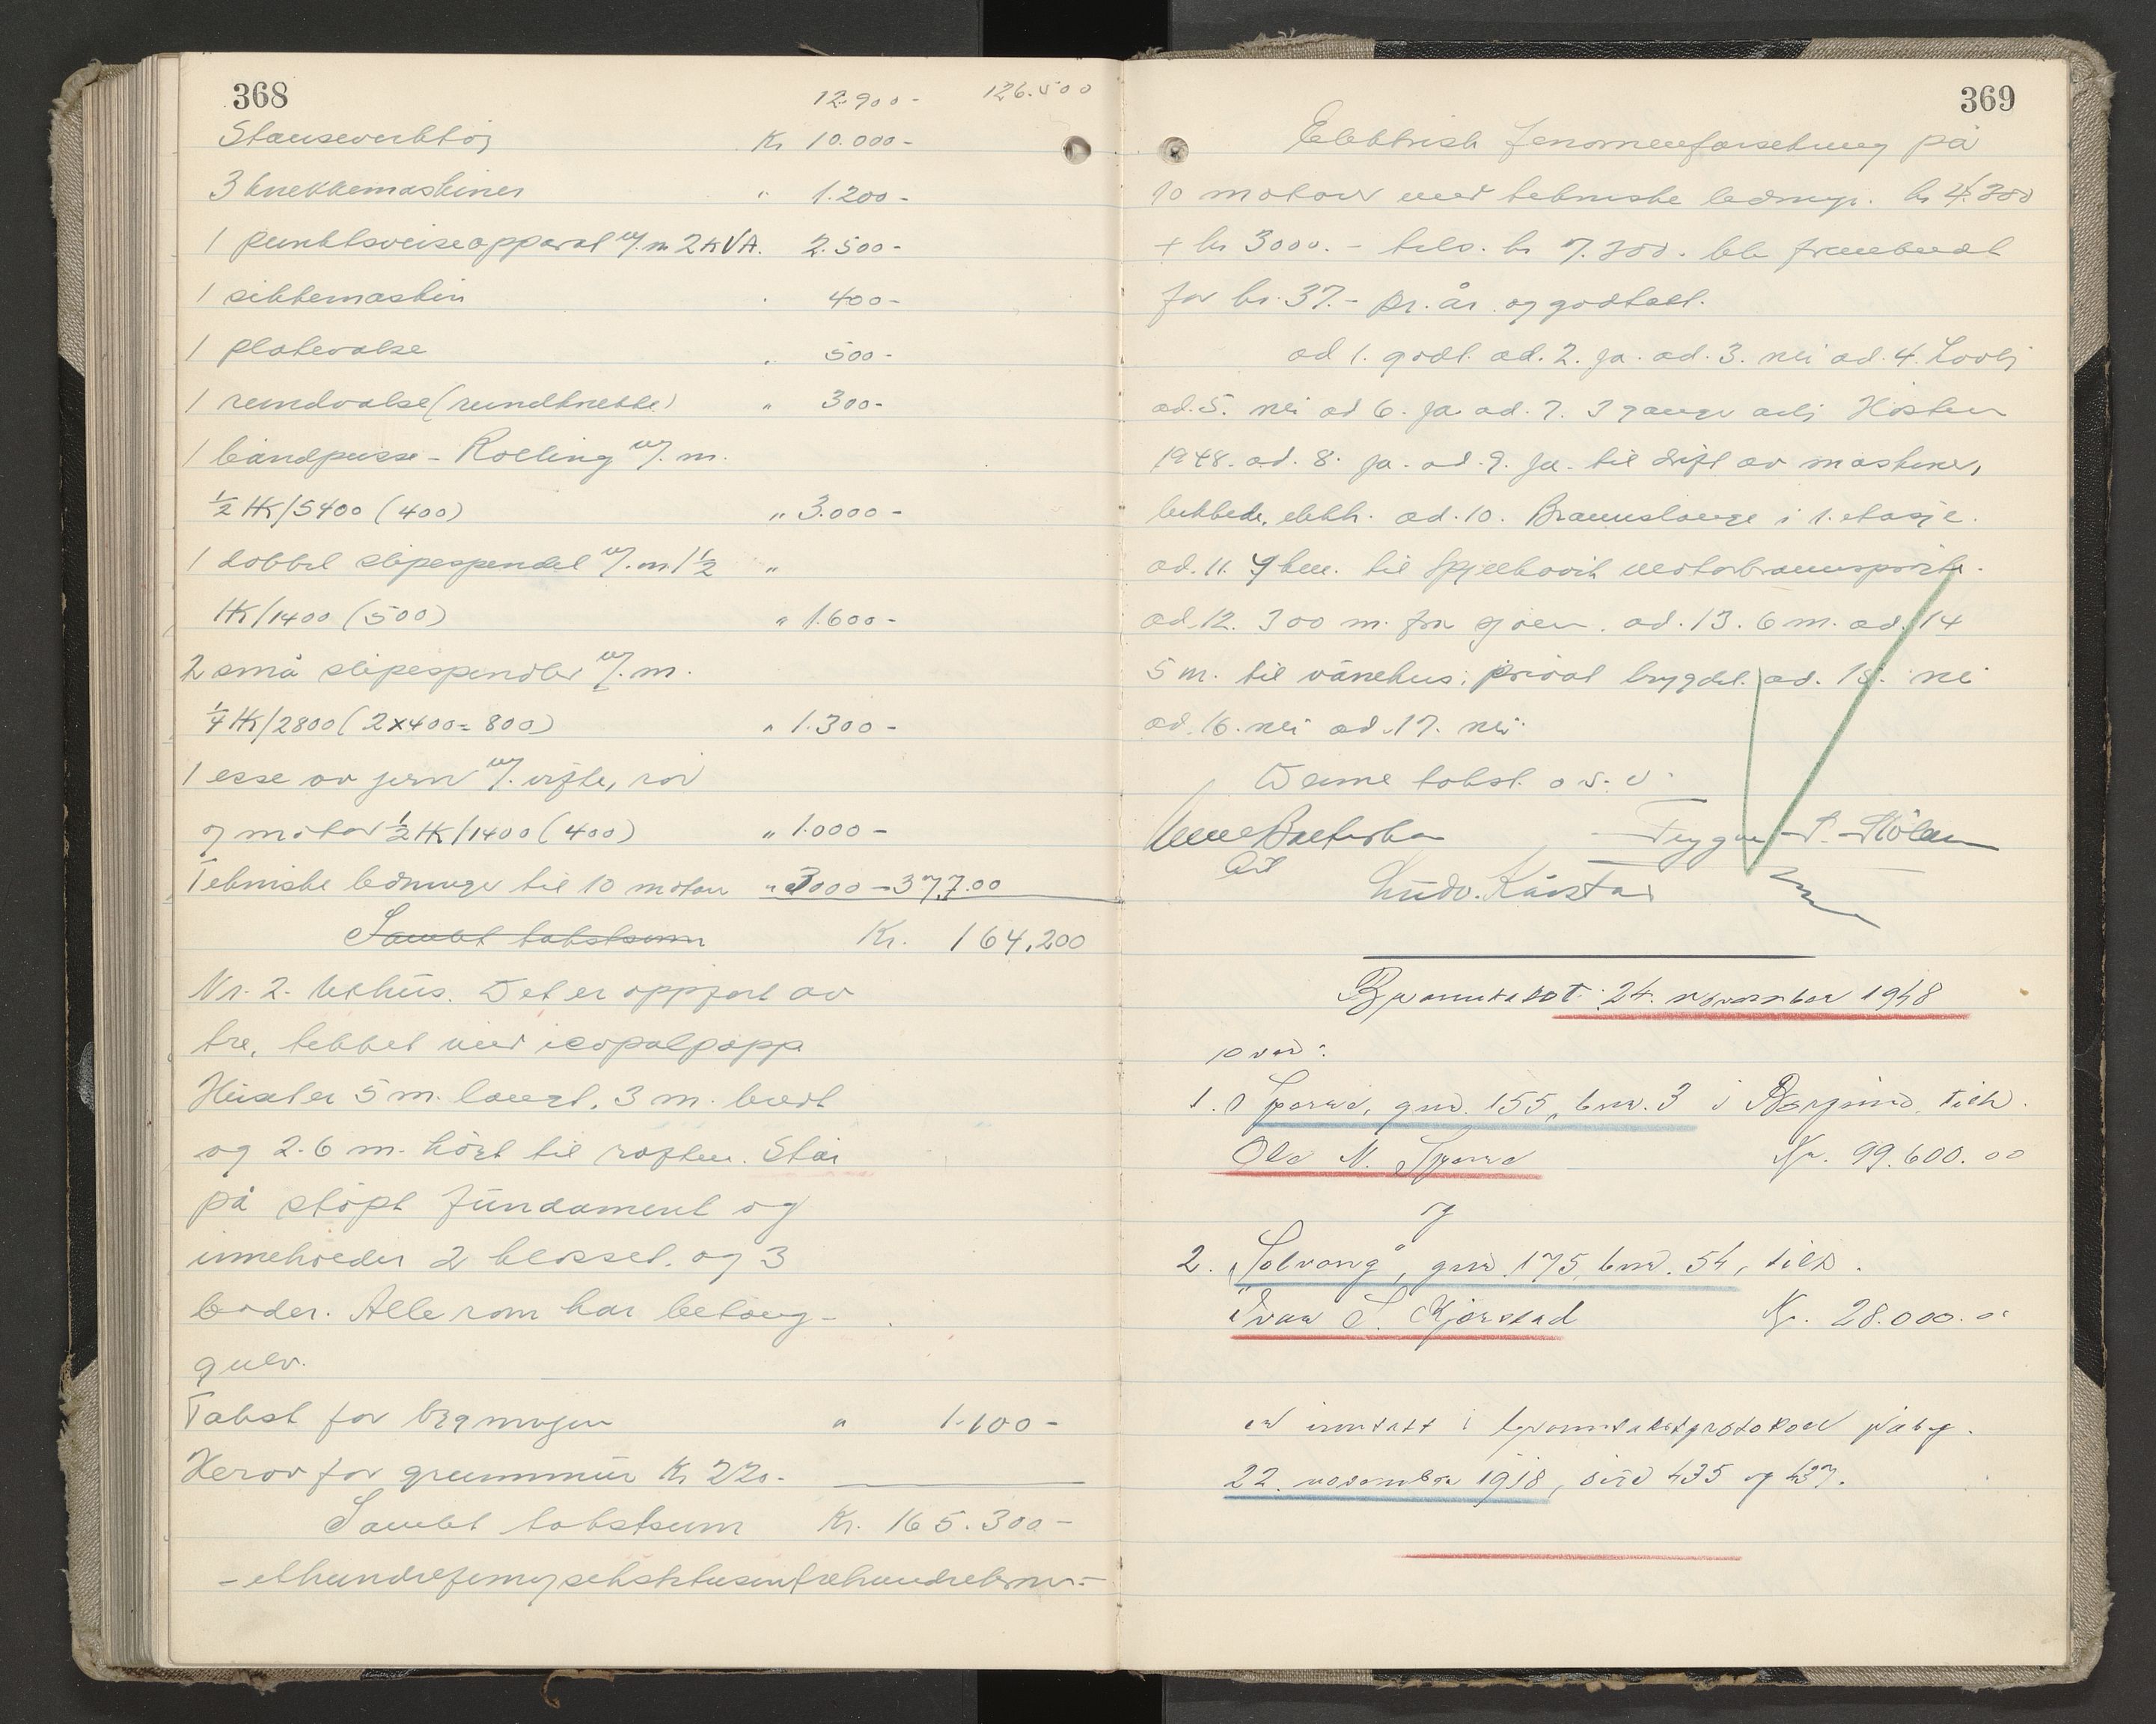 368
12.900-   126.500
Stanseverktöj   Kr 10.000-
3 knekkemaskiner   " 1.200-
1 punktsveiseapparat m/. m 2 KVA.   2.500-
1 sikkemaskin   " 400-
1 platevalse   " 500-
1 rundvalse (rundknekke)   " 300-
1 båndpusse - Roeling m/. m.
½ HK/5400 (400)   " 3.000-
1 dobbel slipespendel m/. m. 1½   "
HK/1400 (500)   " 1.600-
2 små slipespindler m/. m.
¼ HK/2800 (2x400=800)   " 1.300-
1 esse av jern m/. vifte, rör
og motor ½ HK/1400 (400)   " 1.000-
Tekniske ledninger til 10 motorer   " 3000-   37,700
Samlet takstsum   Kr. 164,200
Nr. 2. Uthus. Det er oppfört av
tre, tekket med icopalpapp
Huset er 5 m. langt, 3 m. bredt
og 2.6 m. högt til röften. Står
på stöpt fundament og
inneholder 2 klosset. og 3
boder. Alle rom har betong-
gulv.
Takst for bygningen   " 1.100-
Herav for grunnmur Kr 220.-
Samlet takstsum   Kr. 165.300-
- etthundreogsekstifemtusentrehundrekroner-
369
Elektrisk fenomenforsikring på
10 motorer med tekniske ledninger. kr 4.300
+ kr 3000.- tils. kr 7.300. ble frembudt
for kr. 37.- pr. år og godtatt.
ad 1. godt. ad. 2. ja. ad. 3. nei ad. 4. Lovlig
ad. 5. nei ad 6. ja ad. 7. 3 ganger årlig Hösten
1948. ad. 8. ja. ad. 9. ja. til drift av maskiner,
lukkede, elektr. ad. 10. Brannslange i 1. etasje.
ad. 11. 9 km. til Spjelkavik motorbrannspröite.
ad. 12. 300 m. fra sjöen. ad. 13. 6 m. ad. 14
5 m. til vånehus; privat bygdet. ad. 15. nei
ad. 16. nei ad. 17. nei
Denne takst o. s. v.
Trygve P. Stölen
Ludv. Kårstad
Branntakst 24. november 1948
over:
1. gnr. 155, bnr. 3 i Borgund, tilh.
Ola N.   Kr. 99.600.00
og
2. "Solvang", gnr. 175, bnr. 54, tilh.
Ivar S. Kjørstad   Kr. 28.000.00
er inntatt i branntakstprotokoll påbeg.
22. november 1918, side 435 og 437.